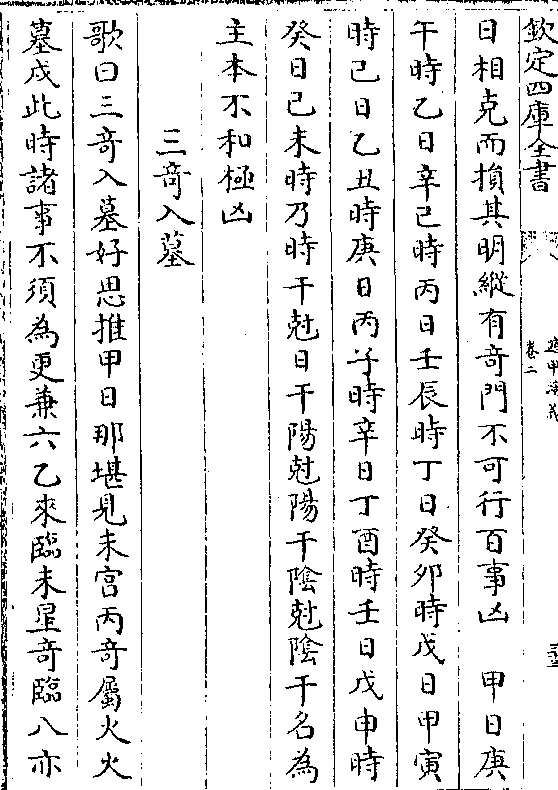 欽定四庫全書
遁甲演義
卷二
日相克而損其明縱有竒門不可行百事凶　甲日庚
午時乙日辛巳時丙日壬辰時丁日癸卯時戊日甲寅
時己日乙丑時庚日丙子時辛日丁酉時壬日戊申時
癸日己未時乃時干尅日干陽尅陽干陰尅陰干名為
主本不和極凶
三竒入墓
歌曰三竒入墓好思推甲日那堪見未宮丙竒屬火火
墓戌此時諸事不須為更兼六乙來臨未星竒臨八亦